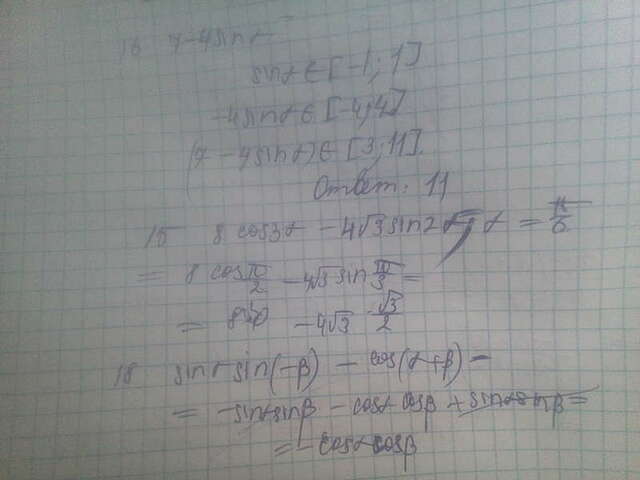 16 7-4sinα
sinα ∈ [-1; 1]
-4sinα ∈ [-4; 4]
(7 - 4sinα) ∈ [3; 11].
Ответ: 11
15 8 cos3α - 4√3 sin2α α = π/6
= 8 cos π/2 - 4√3 sin π/3 =
= 8·0 - 4√3 · √3/2
18 sinα sin(-β) - cos(α+β) =
= -sinα sinβ - cosα cosβ + sinα sinβ =
= - cosα cosβ